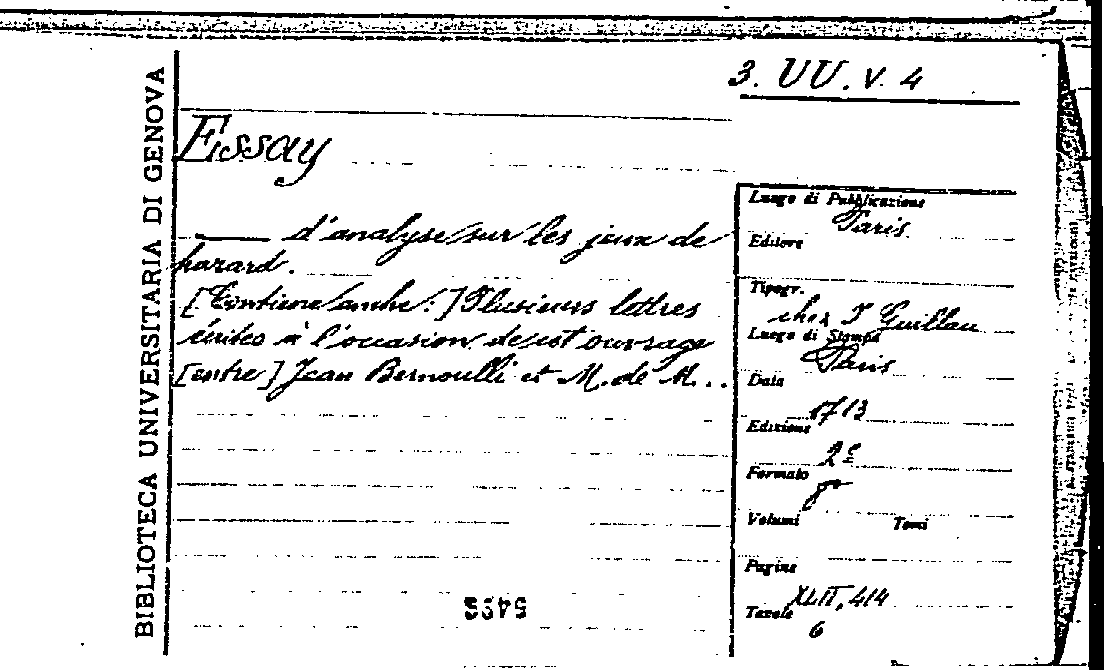 3. UU. V. 4
BIBLIOTECA UNIVERSITARIA DI GENOVA
Essay
d'analyse sur les jeux de
hazard.
[Contiene anche:] Plusieurs lettres
écrites à l'occasion de cet ouvrage
[entre] Jean Bernoulli et M. de M...
Luogo di Pubblicazione
Paris
Editore
Tipogr.
chez J Guillau
Luogo di Stampa
Paris
Data
1713
Edizione
2e
Formato
8°
Volumi Tomi
Pagine
XLII, 414
Tavole
6